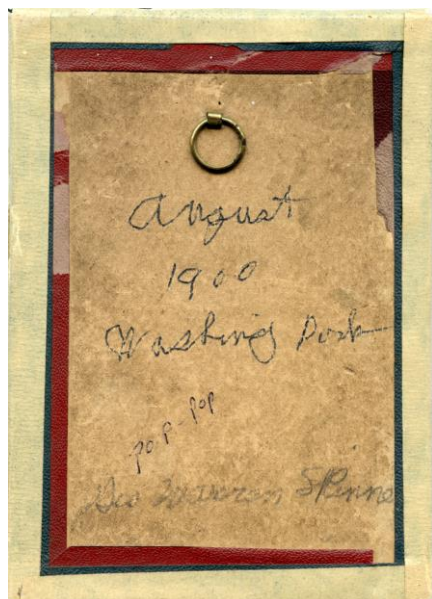 August
1900
Washing Park
pop-pop
Geo Warren Skinne